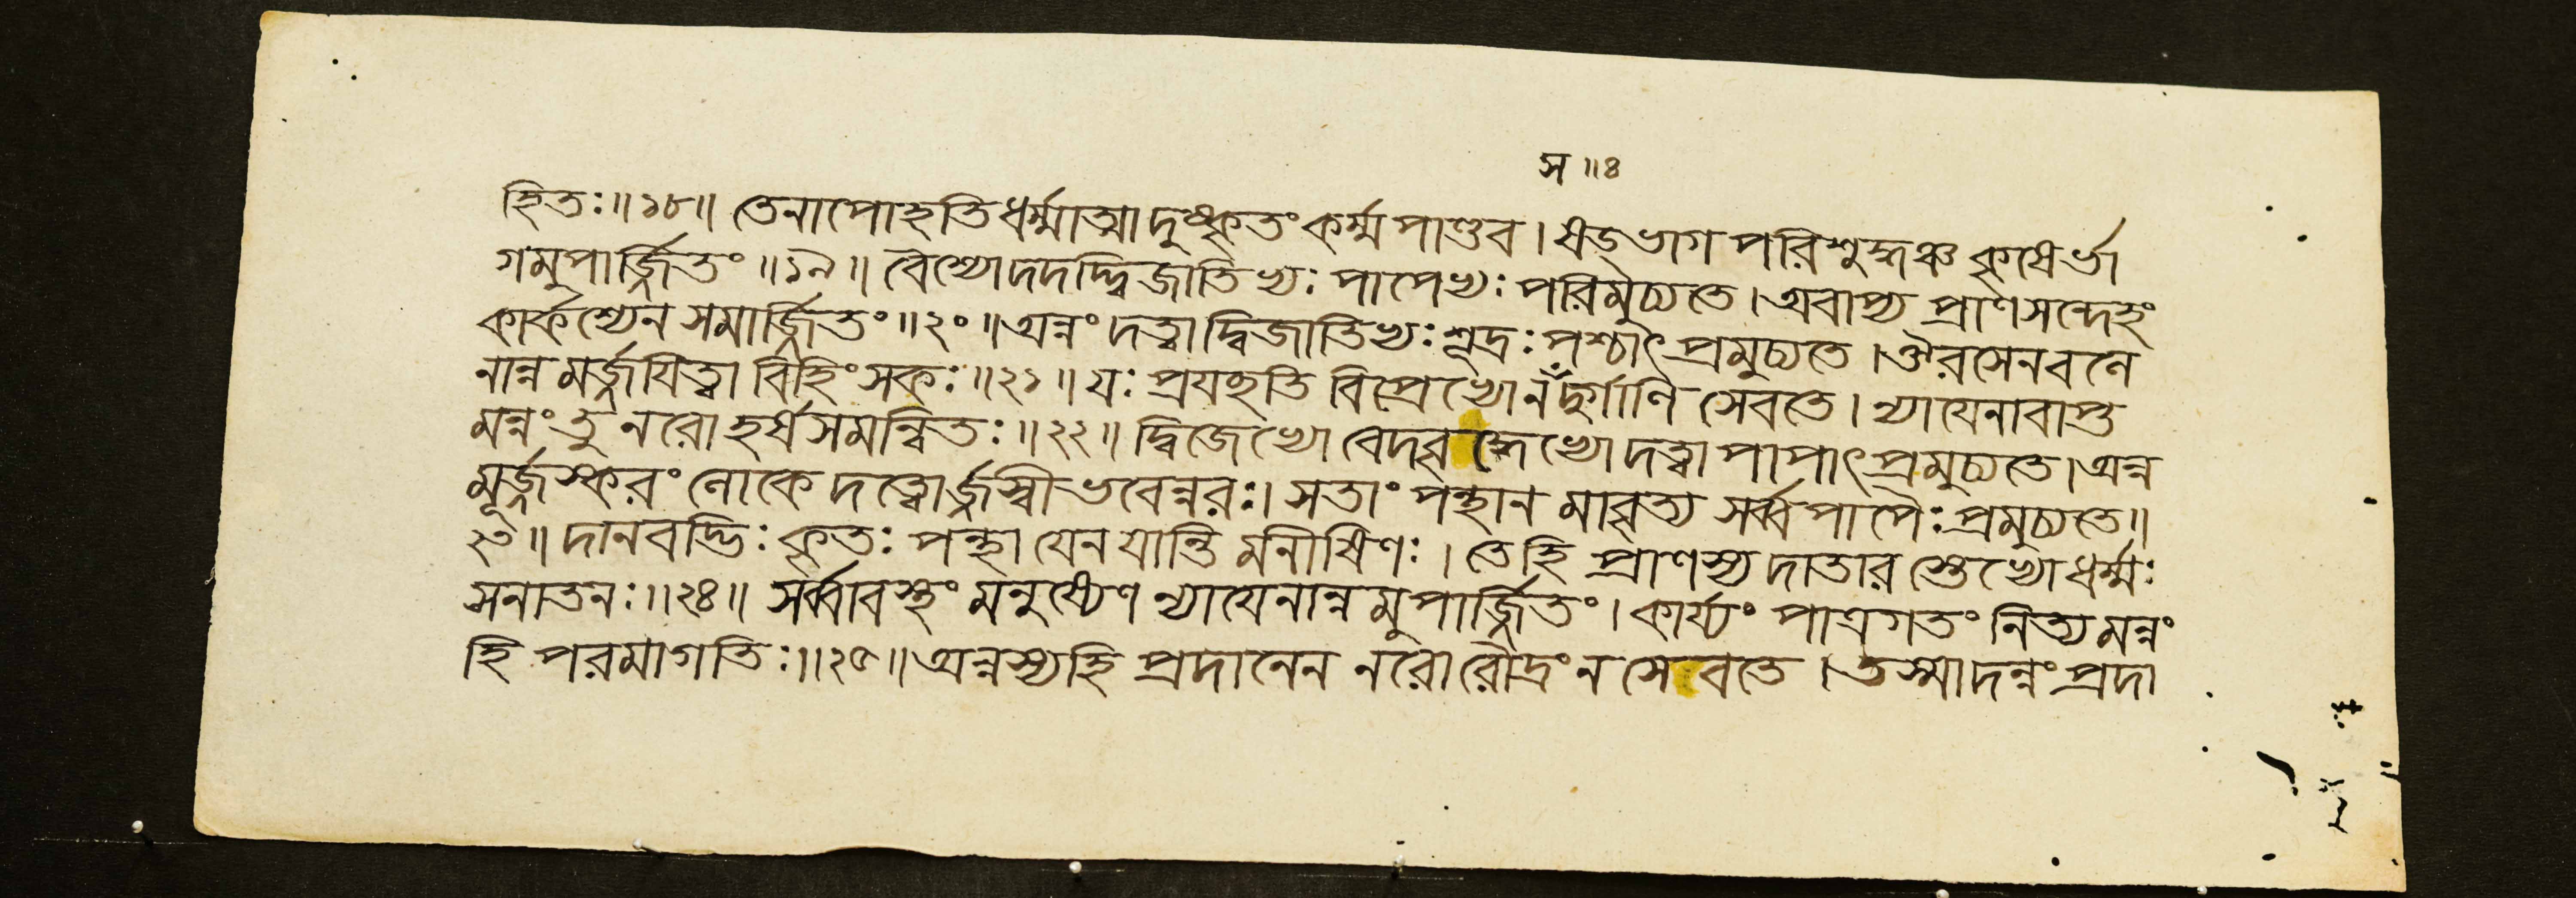 স ॥ ৪
হিতঃ ॥ ১৮ ॥ তেনাপোহতিধর্ম্মাত্মাদুষ্কৃতং কর্ম্ম পাণ্ডব । ষড্ভাগ পরিশুদ্ধঞ্চ কৃষের্ভা
গমুপার্জ্জিতং ॥ ১৯ ॥ বৈশ্যোদদদ্দ্বিজাতিভ্যঃ পাপেভ্যঃ পরিমুচ্যতে । অবাপ্য প্রাণসন্দেহং
কার্কশ্যেন সমার্জ্জিতং ॥ ২০ ॥ অন্নং দত্বা দ্বিজাতিভ্যঃ শূদ্রঃ পশ্চাৎ প্রমুচ্যতে । ঔরসেনবলে
নান্ন মর্জ্জয়িত্বা বিহিংসকঃ ॥ ২১ ॥ যঃ প্রযচ্ছতি বিপ্রেভ্যো নঁদুর্গাণি সেবতে । ন্যায়েনাবাপ্ত
মন্নং তু নরো হর্ষসমন্বিতঃ ॥ ২২ ॥ দ্বিজেভ্যো বেদবৃদ্ধেভ্যো দত্বা পাপাৎ প্রমুচ্যতে । অন্ন
মূর্জ্জস্করং লোকে দত্বোর্জ্জস্বী ভবেন্নরঃ । সতাং পন্থান মাবৃত্য সর্ব্বপাপৈঃ প্রমুচ্যতে ॥
২৩ ॥ দানবদ্ভিঃ কৃতঃ পন্থা যেন যান্তি মনীষিণঃ । তেহি প্রাণস্য দাতার স্তেভ্যো ধর্ম্মঃ
সনাতনঃ ॥ ২৪ ॥ সর্ব্বাবস্থং মনুষ্যেণ ন্যায়েনান্ন মুপার্জ্জিতং । কার্য্যং পাত্রগতং নিত্য মন্নং
হি পরমাগতিঃ ॥ ২৫ ॥ অন্নস্যহি প্রদানেন নরো রৌদ্রং ন সেবতে । তস্মাদন্নং প্রদা